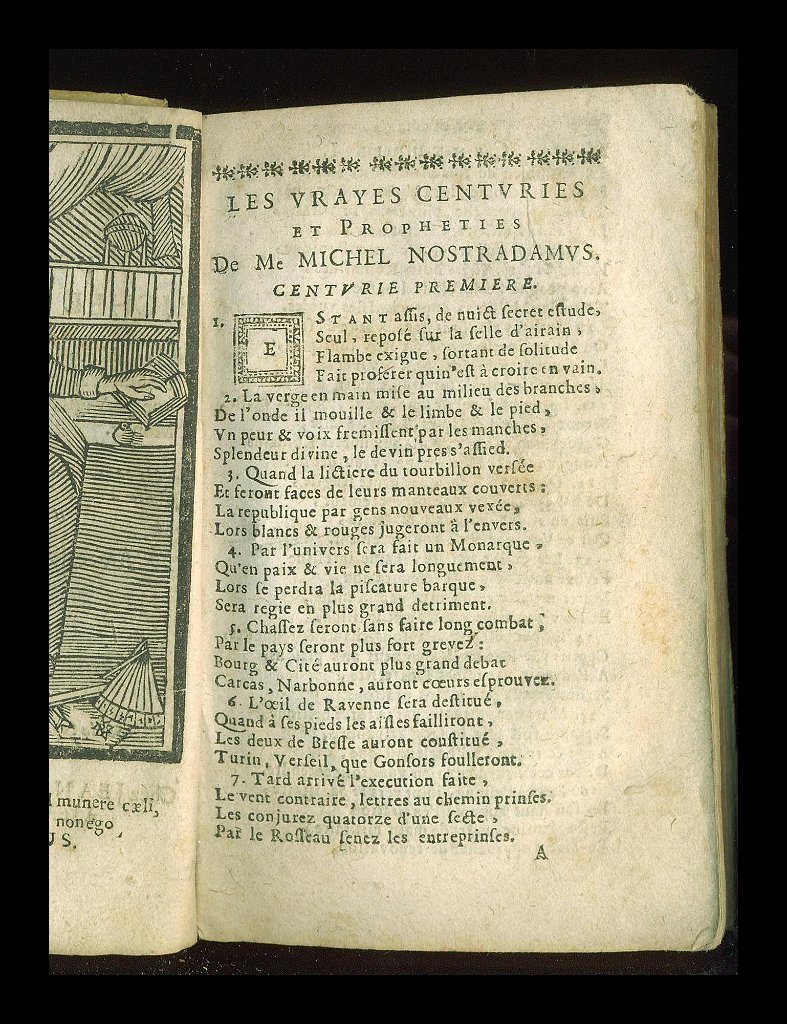 LES VRAYES CENTVRIES
ET PROPHETIES
De Me MICHEL NOSTRADAMVS.
CENTVRIE PREMIERE.
1. ESTANT assis, de nuict secret estude,
Seul, reposé sur la selle d'airain,
Flambe exigue, sortant de solitude
Fait proferer quin'est à croire en vain.
2. La verge en main mise au milieu des branches,
De l'onde il mouille & le limbe & le pied,
Vn peur & voix fremissent par les manches,
Splendeur divine, le devin pres s'assied.
3. Quand la lictiere du tourbillon versée
Et seront faces de leurs manteaux couverts:
La republique par gens nouveaux vexée,
Lors blancs & rouges jugeront à l'envers.
4. Par l'univers sera fait un Monarque,
Qu'en paix & vie ne sera longuement,
Lors se perdra la piscature barque,
Sera regie en plus grand detriment.
5. Chassez seront sans faire long combat,
Par le pays seront plus fort grevez:
Bourg & Cité auront plus grand debat
Carcas, Narbonne, auront cœurs esprouvez.
6. L'œil de Ravenne sera destitué,
Quand à ses pieds les aisles failliront,
Les deux de Bresse auront coustitué,
Turin, Verseil, que Gonsors foulleront.
7. Tard arrivé l'execution faite,
Le vent contraire, lettres au chemin prinses.
Les conjurez quatorze d'une secte,
Par le Rosseau senez les entreprinses.
A
munere cæli,
non ego,
US.